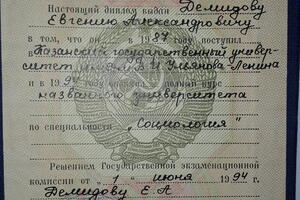 Настоящий диплом выдан Демидову
Евгению Александровичу
в том, что он в 1987 году поступил в
Казанский государственный универ-
ситет им. В.И. Ульянова-Ленина
и в 1994 году окончил полный курс
названного университета
по специальности „Социология“
Решением Государственной экзаменационной
комиссии от "1" июня 1994 г.
Демидову Е.А